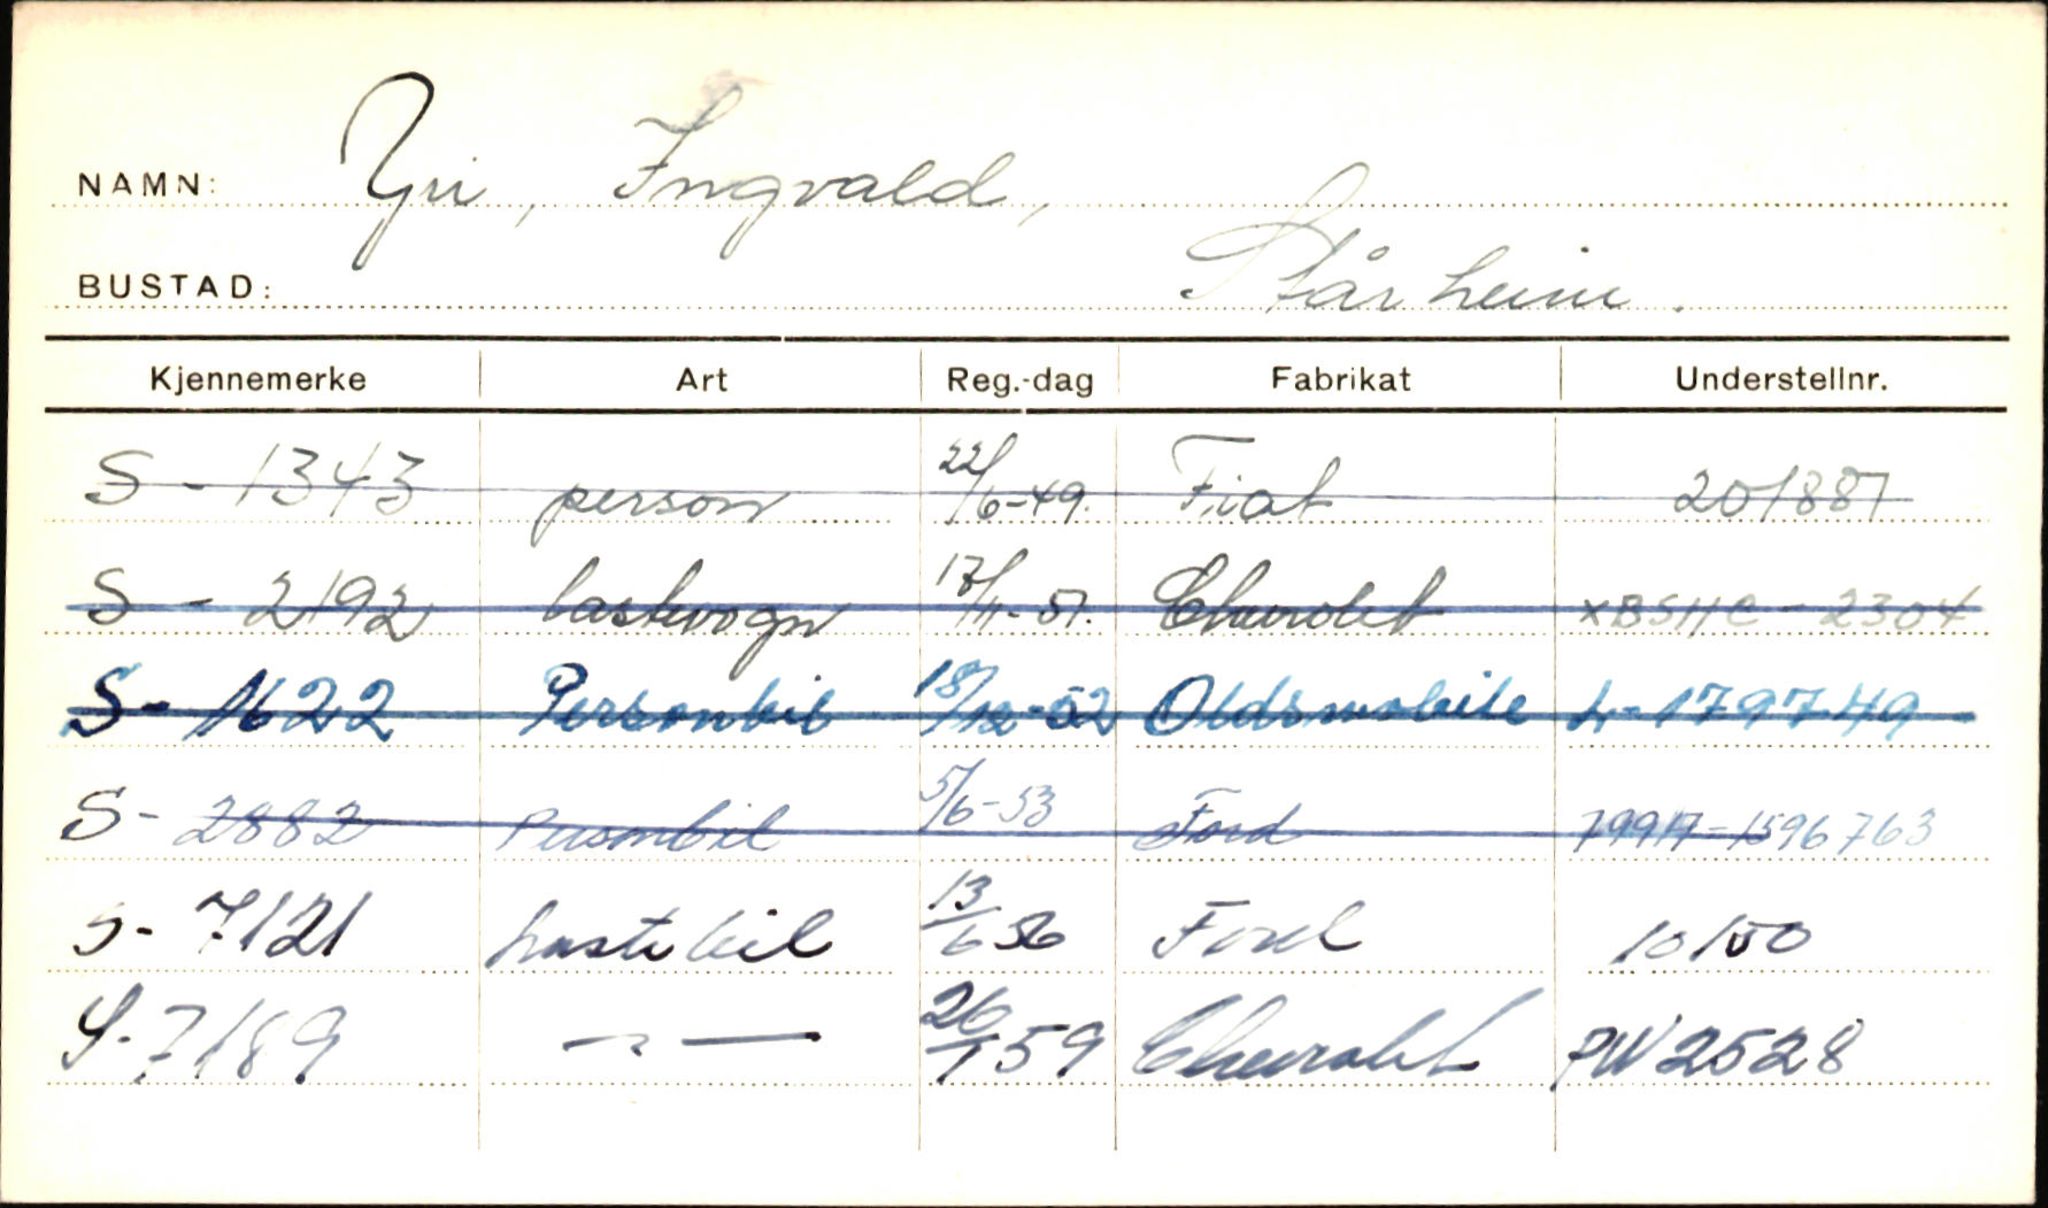 NAMN: Yri, Ingvald,
BUSTAD: Stårheim.
Kjennemerke Art Reg.-dag Fabrikat Understellnr.
S - 1343 person 22/6-49. Fiat 201887
S - 2192 lastevogn 17/11-51. Chevrolet XBSHC - 2304
S - 1622 Personbil 18/12-52 Oldsmobile L-179749
S - 2882 Personbil 5/6-53 Ford 1596763
S - 7121 Lastebil 13/6 56 Ford 10150
S - 7189 — " — 26/1 59 Chevrolet PW2528